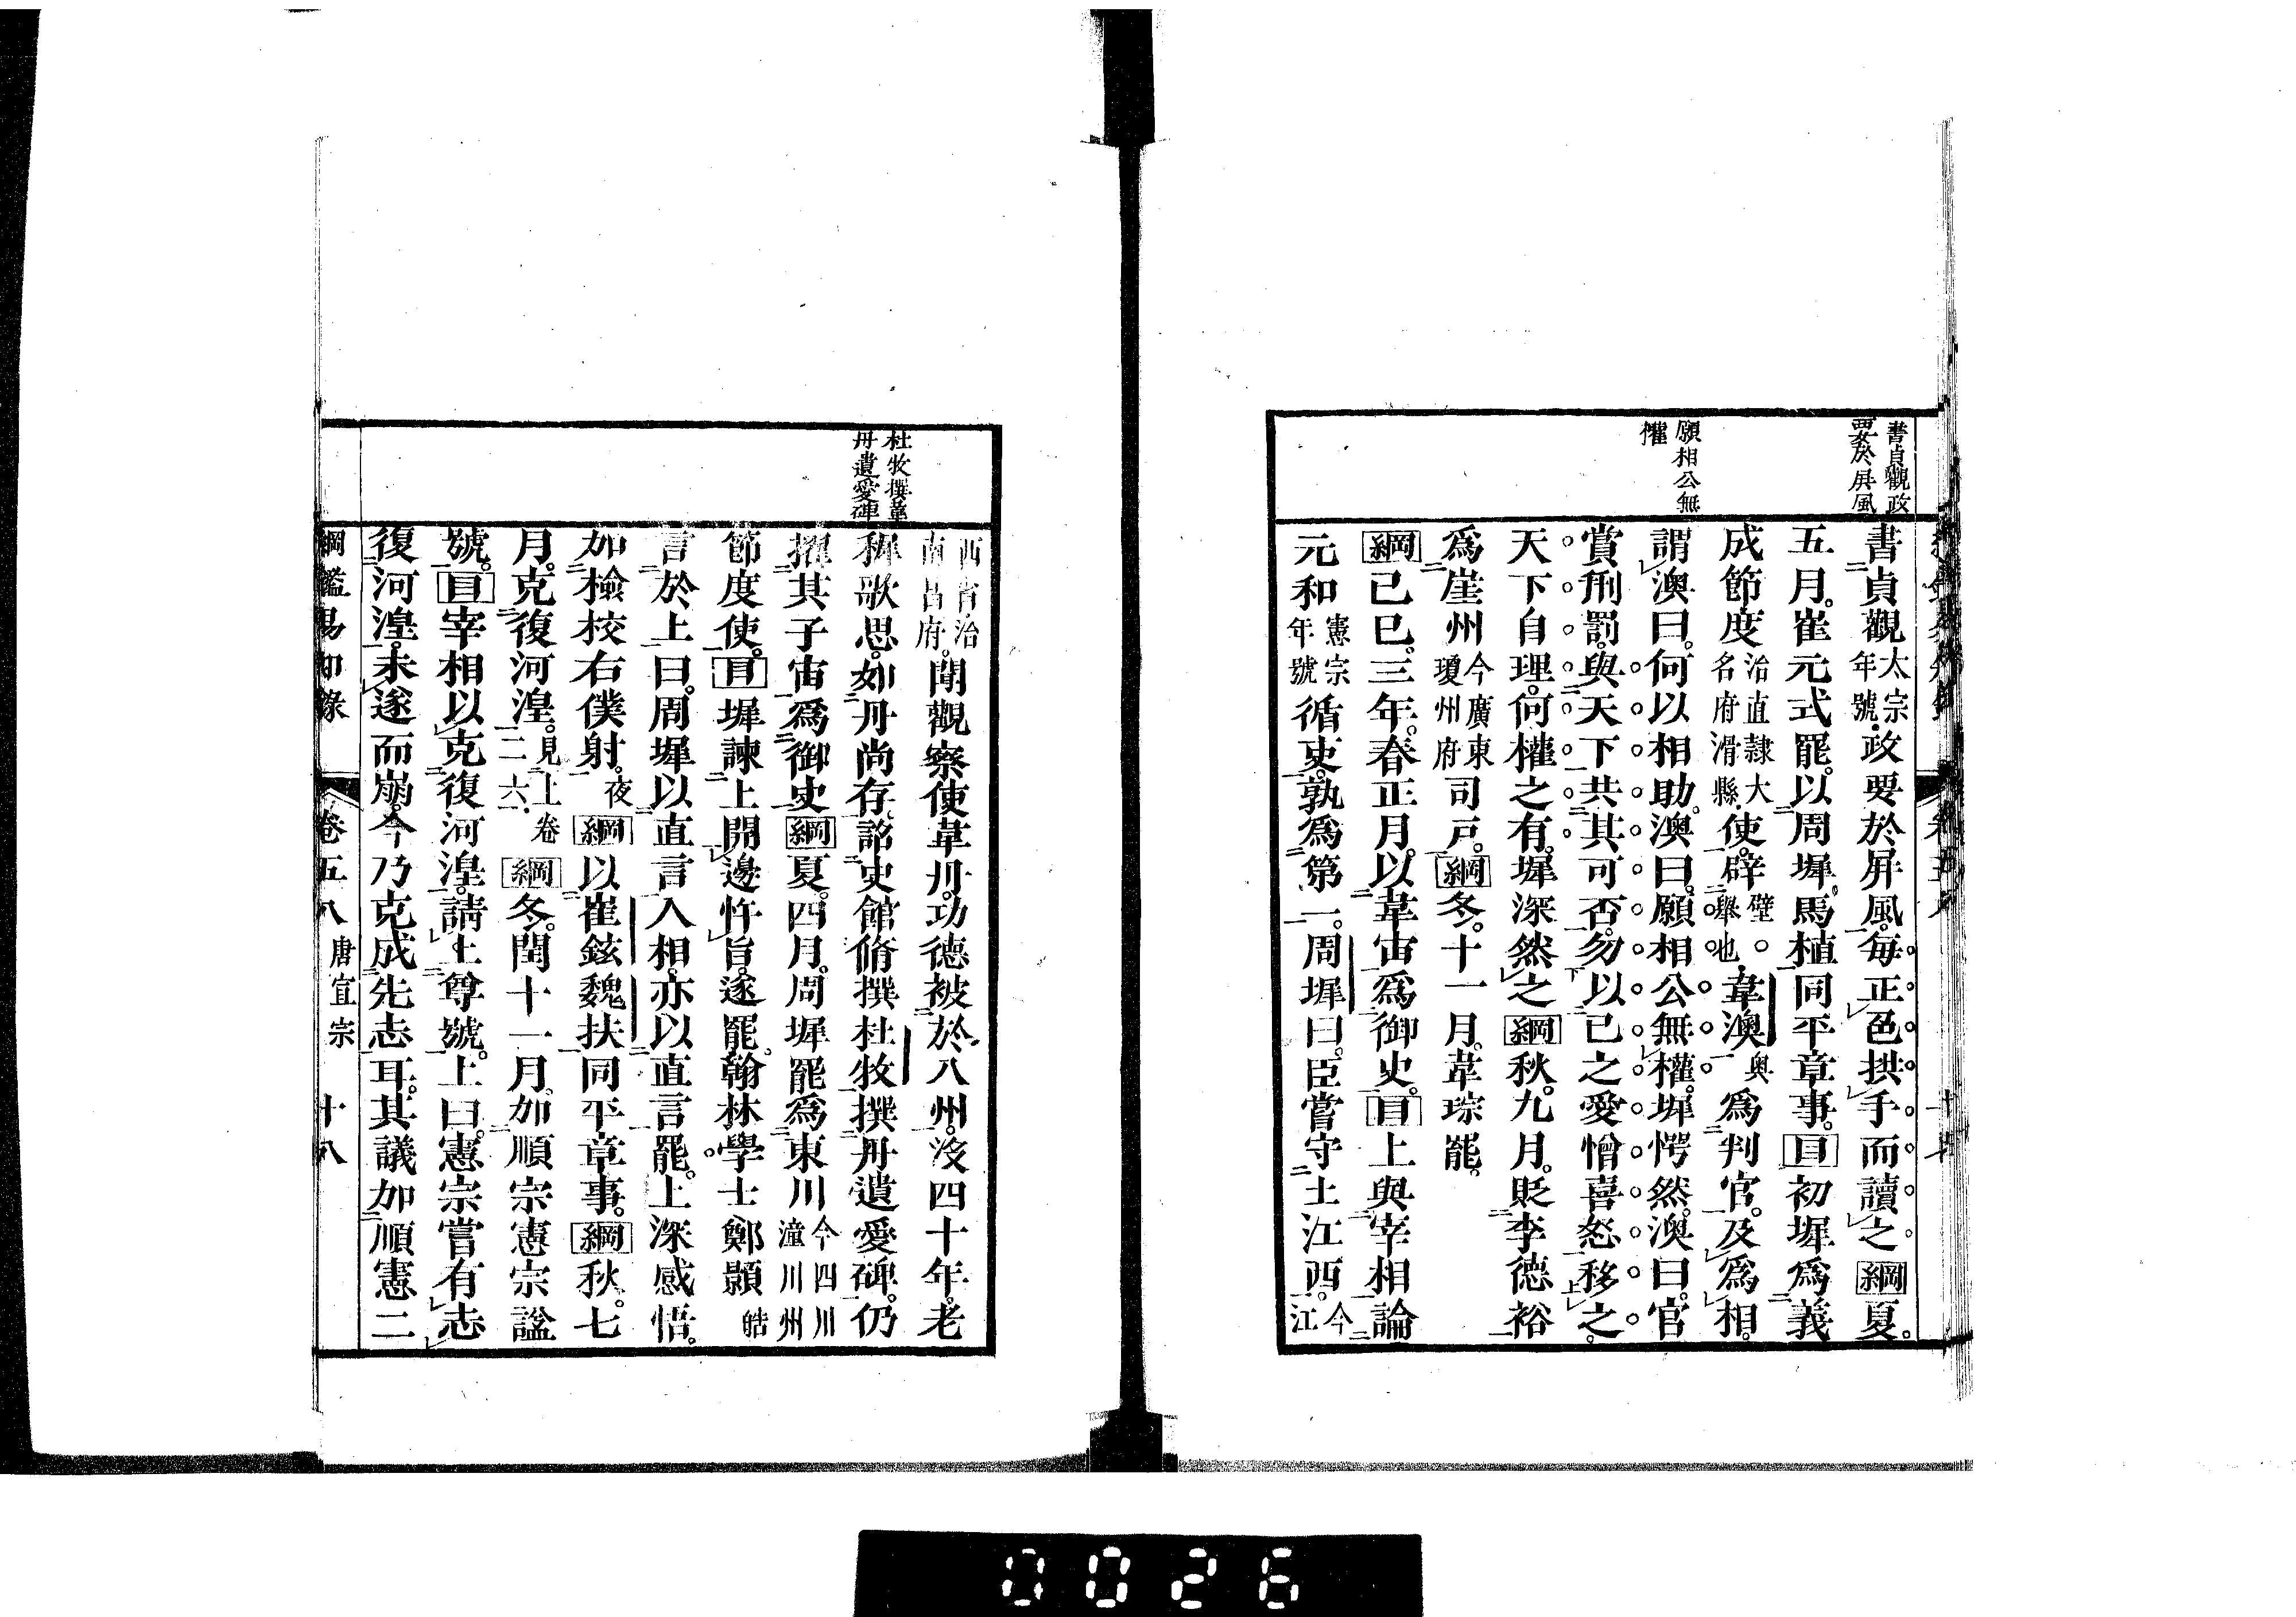 書貞觀政
要於屏風
願相公無
權
書貞觀太宗年號政要於屏風。每正色拱手而讀之綱夏。
五月。崔元式罷。以周墀。馬植同平章事。目初墀爲義
成節度治直隸大名府滑縣使。辟璧。舉也韋澳奥爲判官。及爲相。
謂澳曰。何以相助。澳曰。願相公無權。墀愕然。澳曰。官
賞刑罰。與天下共其可否。勿以己之愛憎喜怒移之。
天下自理。何權之有。墀深然之綱秋。九月。貶李德裕
爲崖州今廣東瓊州府司戶。綱冬。十一月。韋琮罷。
綱己巳。三年。春正月。以韋宙爲御史。目上與宰相論
元和憲宗年號循吏。孰爲第一。周墀曰。臣嘗守土江西。今江
杜牧撰韋
丹遺愛碑
西省治南昌府。聞觀察使韋丹。功德被於八州。沒四十年。老
稺歌思。如丹尚存。詔史館脩撰杜牧撰丹遺愛碑。仍
擢其子宙爲御史綱夏。四月。周墀罷爲東川今四川潼川州
節度使。目墀諫上開邊忤旨。遂罷。翰林學士鄭顥皓
言於上曰。周墀以直言入相。亦以直言罷。上深感悟。
加檢校右僕射。夜綱以崔鉉魏扶同平章事。綱秋。七
月。克復河湟。見上卷二六綱冬。閏十一月。加順宗憲宗諡
號。目宰相以克復河湟。請上尊號。上曰。憲宗嘗有志
復河湟。未遂而崩。今乃克成先志耳。其議加順憲二
綱鑑易知錄 卷五八 唐宣宗 十八